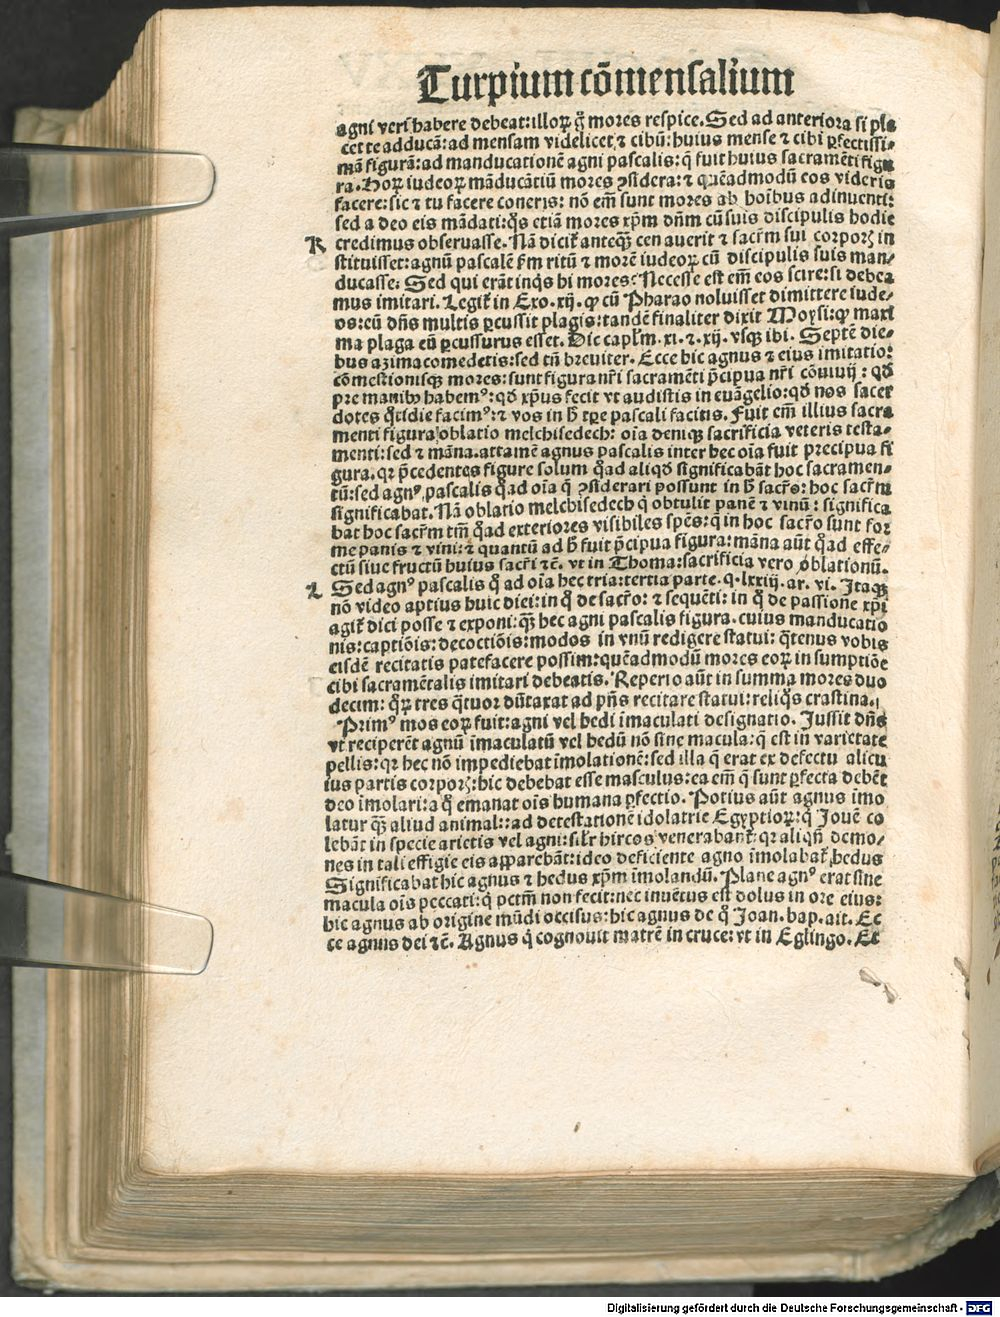 Turpium cōmensalium
agni veri habere debeat: illoꝝ ꝗ̄ mores respice. Sed ad anteriora si pla
cet te adducā: ad mensam videlicet, ⁊ cibū: huius mense ⁊ cibi ꝑfectissi-
mā figurā: ad manducationē agni pascalis: q̄ fuit huius sacramēti figu
ra. Hoꝝ iudeoꝝ māducātiū mores ꝯsidera: ⁊ quēadmodū eos videris
facere: sic ⁊ tu facere coneris: nō em̄ sunt mores ab hoībus adinuenti:
sed a deo eis mādati: q̄s etiā mores xp̄m dn̄m cū suis discipulis hodie
K credimus obseruasse. Nā dicit̄ anteqꝫ cenauerit ⁊ sacr̄m sui corporꝭ in
stituisset: agnū pascalē ẜm ritū ⁊ morē iudeoꝝ cū discipulis suis man-
ducasse. Sed qui erāt inq̄s hi mores? Necesse est em̄ eos scire: si debea
mus imitari. Legit̄ in Exo. xij. ꝙ cū Pharao noluisset dimittere iude-
os: cū dn̄s multis ꝑcussit plagis: tandē finaliter dixit Moysi: ꝙ maxi
ma plaga eū ꝑcussurus esset. Dic capl̄m. xi. ⁊. xij. vsqꝫ ibi. Septē die-
bus azima comedetis: sed tn̄ breuiter. Ecce hic agnus ⁊ eius imitatio:
cōmestionisqꝫ mores: sunt figura nr̄i sacramēti p̄cipua nr̄i cōuiuij: qd̄
pre manibꝰ habemꝰ: qd̄ xp̄us fecit vt audistis in euāgelio: qd̄ nos sacer
dotes q̄tidie facimꝰ: ⁊ vos in h̄ tꝑe pascali facitis. Fuit em̄ illius sacra
menti figura oblatio melchisedech: oīa deniqꝫ sacrificia veteris testa-
menti: sed ⁊ māna. attamē agnus pascalis inter hec oīa fuit precipua fi
gura. qꝛ p̄cedentes figure solum q̄ad aliqd̄ significabāt hoc sacramen-
tū: sed agnꝰ pascalis q̄ad oīa q̄ ꝯsiderari possunt in h̄ sacr̄o: hoc sacr̄m
significabat. Nā oblatio melchisedech q̄ obtulit panē ⁊ vinū: significa
bat hoc sacr̄m tm̄ q̄ad exteriores visibiles sp̄es: q̄ in hoc sacr̄o sunt for
me panis ⁊ vini: ⁊ quantū ad h̄ fuit p̄cipua figura: māna aūt q̄ad effe-
ctū siue fructū huius sacr̄i ⁊c̄. vt in Thoma: sacrificia vero oblationū.
L Sed agnꝰ pascalis q̄ ad oīa hec tria: tertia parte. q. lxxiij. ar. vi. Itaqꝫ
nō video aptius huic diei: in q̄ de sacr̄o: ⁊ sequēti: in q̄ de passione xp̄i
agit̄ dici posse ⁊ exponi: qꝫ hec agni pascalis figura. cuius manducatio
nis: captiōis: decoctiōis: modos in vnū redigere statui: q̄tenus vobis
eisdē recitatis patefacere possim: quēadmodū mores eoꝝ in sumptiōe
cibi sacramētalis imitari debeatis. Reperio aūt in summa mores duo
decim: q̄ꝝ tres q̄tuor dūtaxat ad p̄ns recitare statui: reliq̄s crastina.
Primꝰ mos eoꝝ fuit: agni vel hedi īmaculati designatio. Jussit dn̄s
vt reciperēt agnū īmaculatū vel hedū nō sine macula: q̄ est in varietate
pellis: qꝛ hec nō impediebat īmolationē: sed illa q̄ erat ex defectu alicu
ius partis corporꝭ: hic debebat esse masculus: ea em̄ q̄ sunt ꝑfecta debēt
deo īmolari: a q̄ emanat oīs humana ꝑfectio. Potius aūt agnus īmo
latur qꝫ aliud animal:: ad detestationē idolatrie Egyptioꝝ: q̄ Jouē co
lebāt in specie arietis vel agni: sil̄r hircos venerabant̄: qꝛ aliqn̄ demo-
nes in tali effigie eis apparebāt: ideo deficiente agno īmolabat̄ hedus
Significabat hic agnus ⁊ hedus xp̄m īmolandū. Plane agnꝰ erat sine
macula oīs peccati: q̄ pctm̄ non fecit: nec inuētus est dolus in ore eius:
hic agnus ab origine mūdi occisus: hic agnus de q̄ Joan. bap. ait. Ec
ce agnus dei ⁊c̄. Agnus q̄ cognouit matrē in cruce: vt in Eglingo. Et
Digitalisierung gefördert durch die Deutsche Forschungsgemeinschaft - DFG